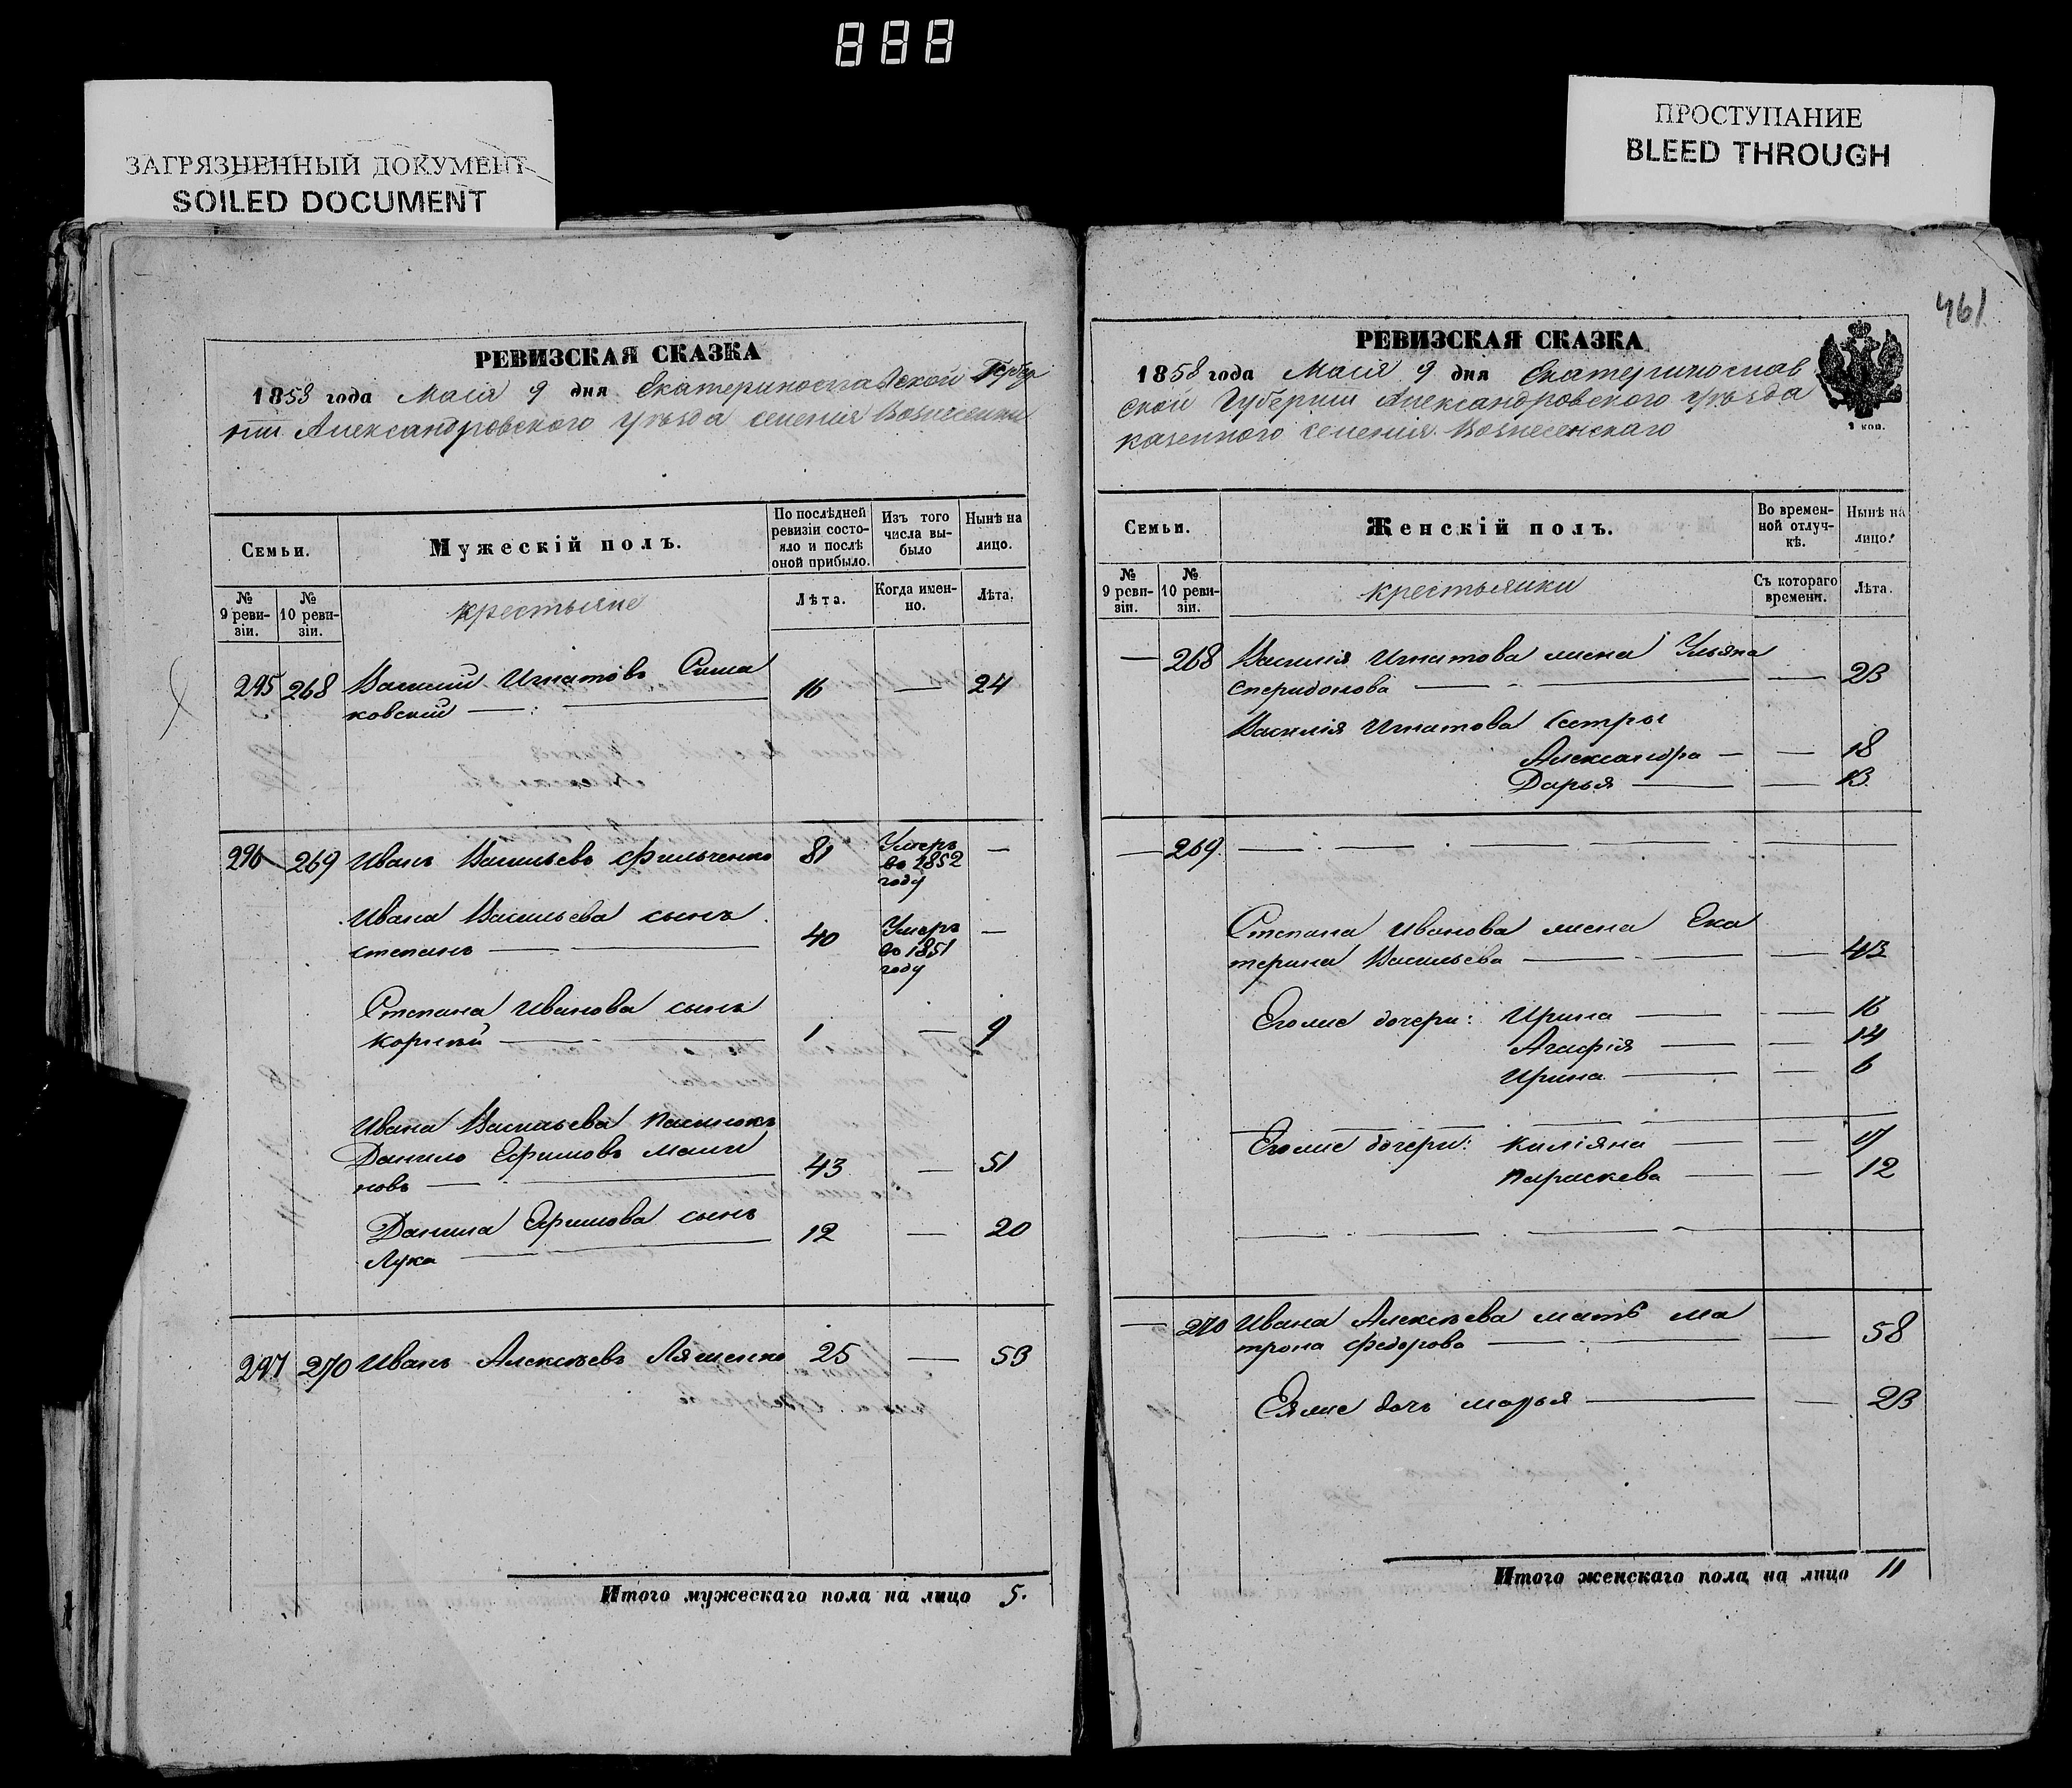 888
ЗАГРЯЗНЕННЫЙ ДОКУМЕНТ
SOILED DOCUMENT
ПРОСТУПАНИЕ
BLEED THROUGH
РЕВИЗСКАЯ СКАЗКА
1858 года Маія 9 дня Екатеринославской Губер
ніи Александровского уѣзда селенія Вознесенки
Семьи.
Мужескій полъ.
По послѣдней ревизіи состо-
яло и послѣ оной прибыло.
Изъ того числа вы-
было
Нынѣ на лицо.
№ 9 реви-
зіи.
№ 10 реви-
зіи.
крестьяне
Лѣта.
Когда имен-
но.
Лѣта.
295 268 Василий Игнатовъ Сима 16 — 24
ковский
296 269 Иванъ Васильевъ Фильченко 81 Умеръ —
во 1852
году
Ивана Васильева сынъ
степанъ 40 Умеръ —
во 1851
году
Степана Иванова сынъ
Корнѣй 1 — 9
Ивана Васильева пасынокъ
Данило Ефимовъ Мали 43 — 51
новъ
Данила Ефимова сынъ 12 — 20
Лука
297 270 Иванъ Алексѣевъ Ляшенко 25 — 53
Итого мужескаго пола на лицо 5.
461
РЕВИЗСКАЯ СКАЗКА
1858 года Маія 9 дня Екатеринослав
ской Губерніи Александровского уѣзда
казенного селенія Вознесенскаго
Семьи.
Женскій полъ.
Во времен-
ной отлуч-
кѣ.
Нынѣ на лицо.
№ 9 реви-
зіи.
№ 10 реви-
зіи.
крестьянки
Съ котораго времени.
Лѣта.
— 268 Василія Игнатова жена Ульяна
Спиридонова — 23
Василія Игнатова Сестры
Александра — — 18
Дарья — — 13
— 269
Степана Иванова жена Ека
терина Васильева — 43
Егоже дочери: Ирина — — 16
Агафія — — 14
Ирина — — 6
Егоже дочери: Киліяна — — 17
Параскева — — 12
— 270 Ивана Алексѣева мать Ма
трона Федорова — 58
Еяже дочь марья — — 23
Итого женскаго пола на лицо 11